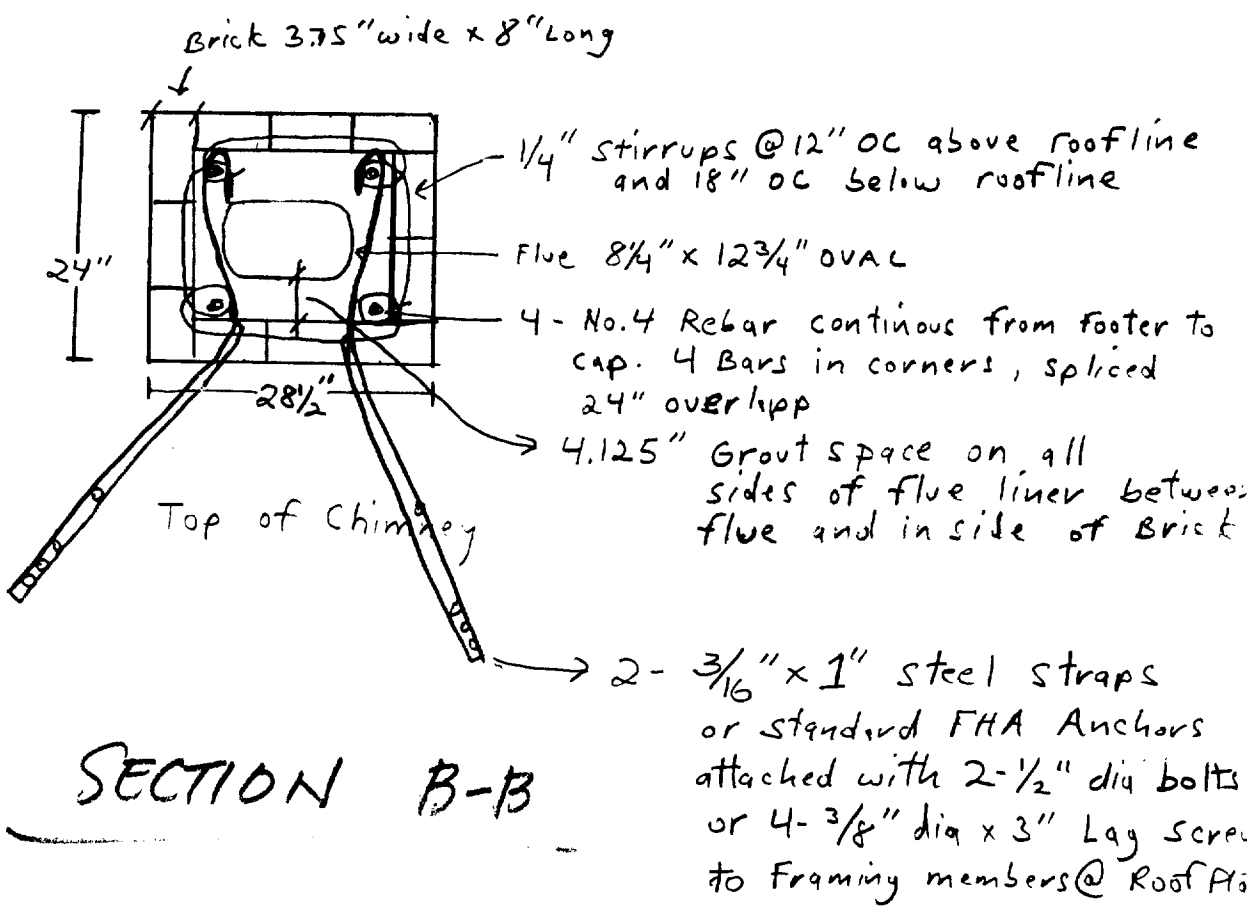 Brick 3.75" wide x 8" Long
1/4" stirrups @ 12" OC above roofline
and 18" OC below roofline
24"
Flue 8 1/4" x 12 3/4" OVAL
4 - No. 4 Rebar continous from Footer to
cap. 4 Bars in corners, spliced
24" overlapp
28 1/2"
4.125" Grout space on all
sides of flue liner betwee
flue and inside of Brick
Top of Chimney
2- 3/16" x 1" steel straps
or standard FHA Anchors
attached with 2-1/2" dia bolts
or 4- 3/8" dia x 3" Lag Screw
to Framing members @ Roof
SECTION B-B